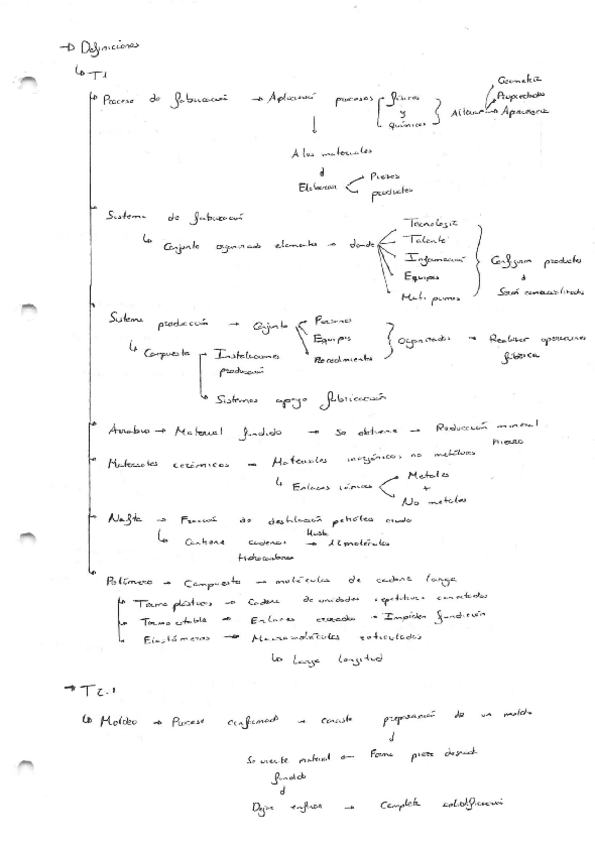 → Definiciones
↳ T1
Proceso de fabricación → Aplicación procesos físicos y químicos } Alterar → Geometría Propiedades Apariencia
↓
A los materiales
↓
Elaborar Piezas productos
Sistema de fabricación
↳ Conjunto organizado elementos → donde Tecnología Talento Información Equipos Mat. primas } Configuran productos
↓
Serán comercializados
Sistema producción → Conjunto Personas Equipos Procedimientos } Organizados → Realizar operaciones fábrica
↳ Compuesto Instalaciones producción
Sistemas apoyo fabricación
Arrabio → Material fundido → Se obtiene → Reducción mineral hierro
Materiales cerámicos → Materiales inorgánicos no metálicos
↳ Enlaces iónicos Metales + No metales
Nafta → Fracción de destilación petróleo crudo
↳ Contiene cadenas Hidrocarburos → Hasta 12 moléculas
Polímero → Compuesto → moléculas de cadena larga
Termoplásticos → Cadena de unidades repetitivas conectadas
Termoestable → Enlaces cruzados → Impiden fundición
Elastómeros → Macromoléculas reticuladas
↳ Larga longitud
→ T2.1
↳ Moldeo → Proceso conformado → consiste preparación de un molde
↓
Se vierte material fundido Forma pieza deseada
↓
Dejar enfriar → Completa solidificación